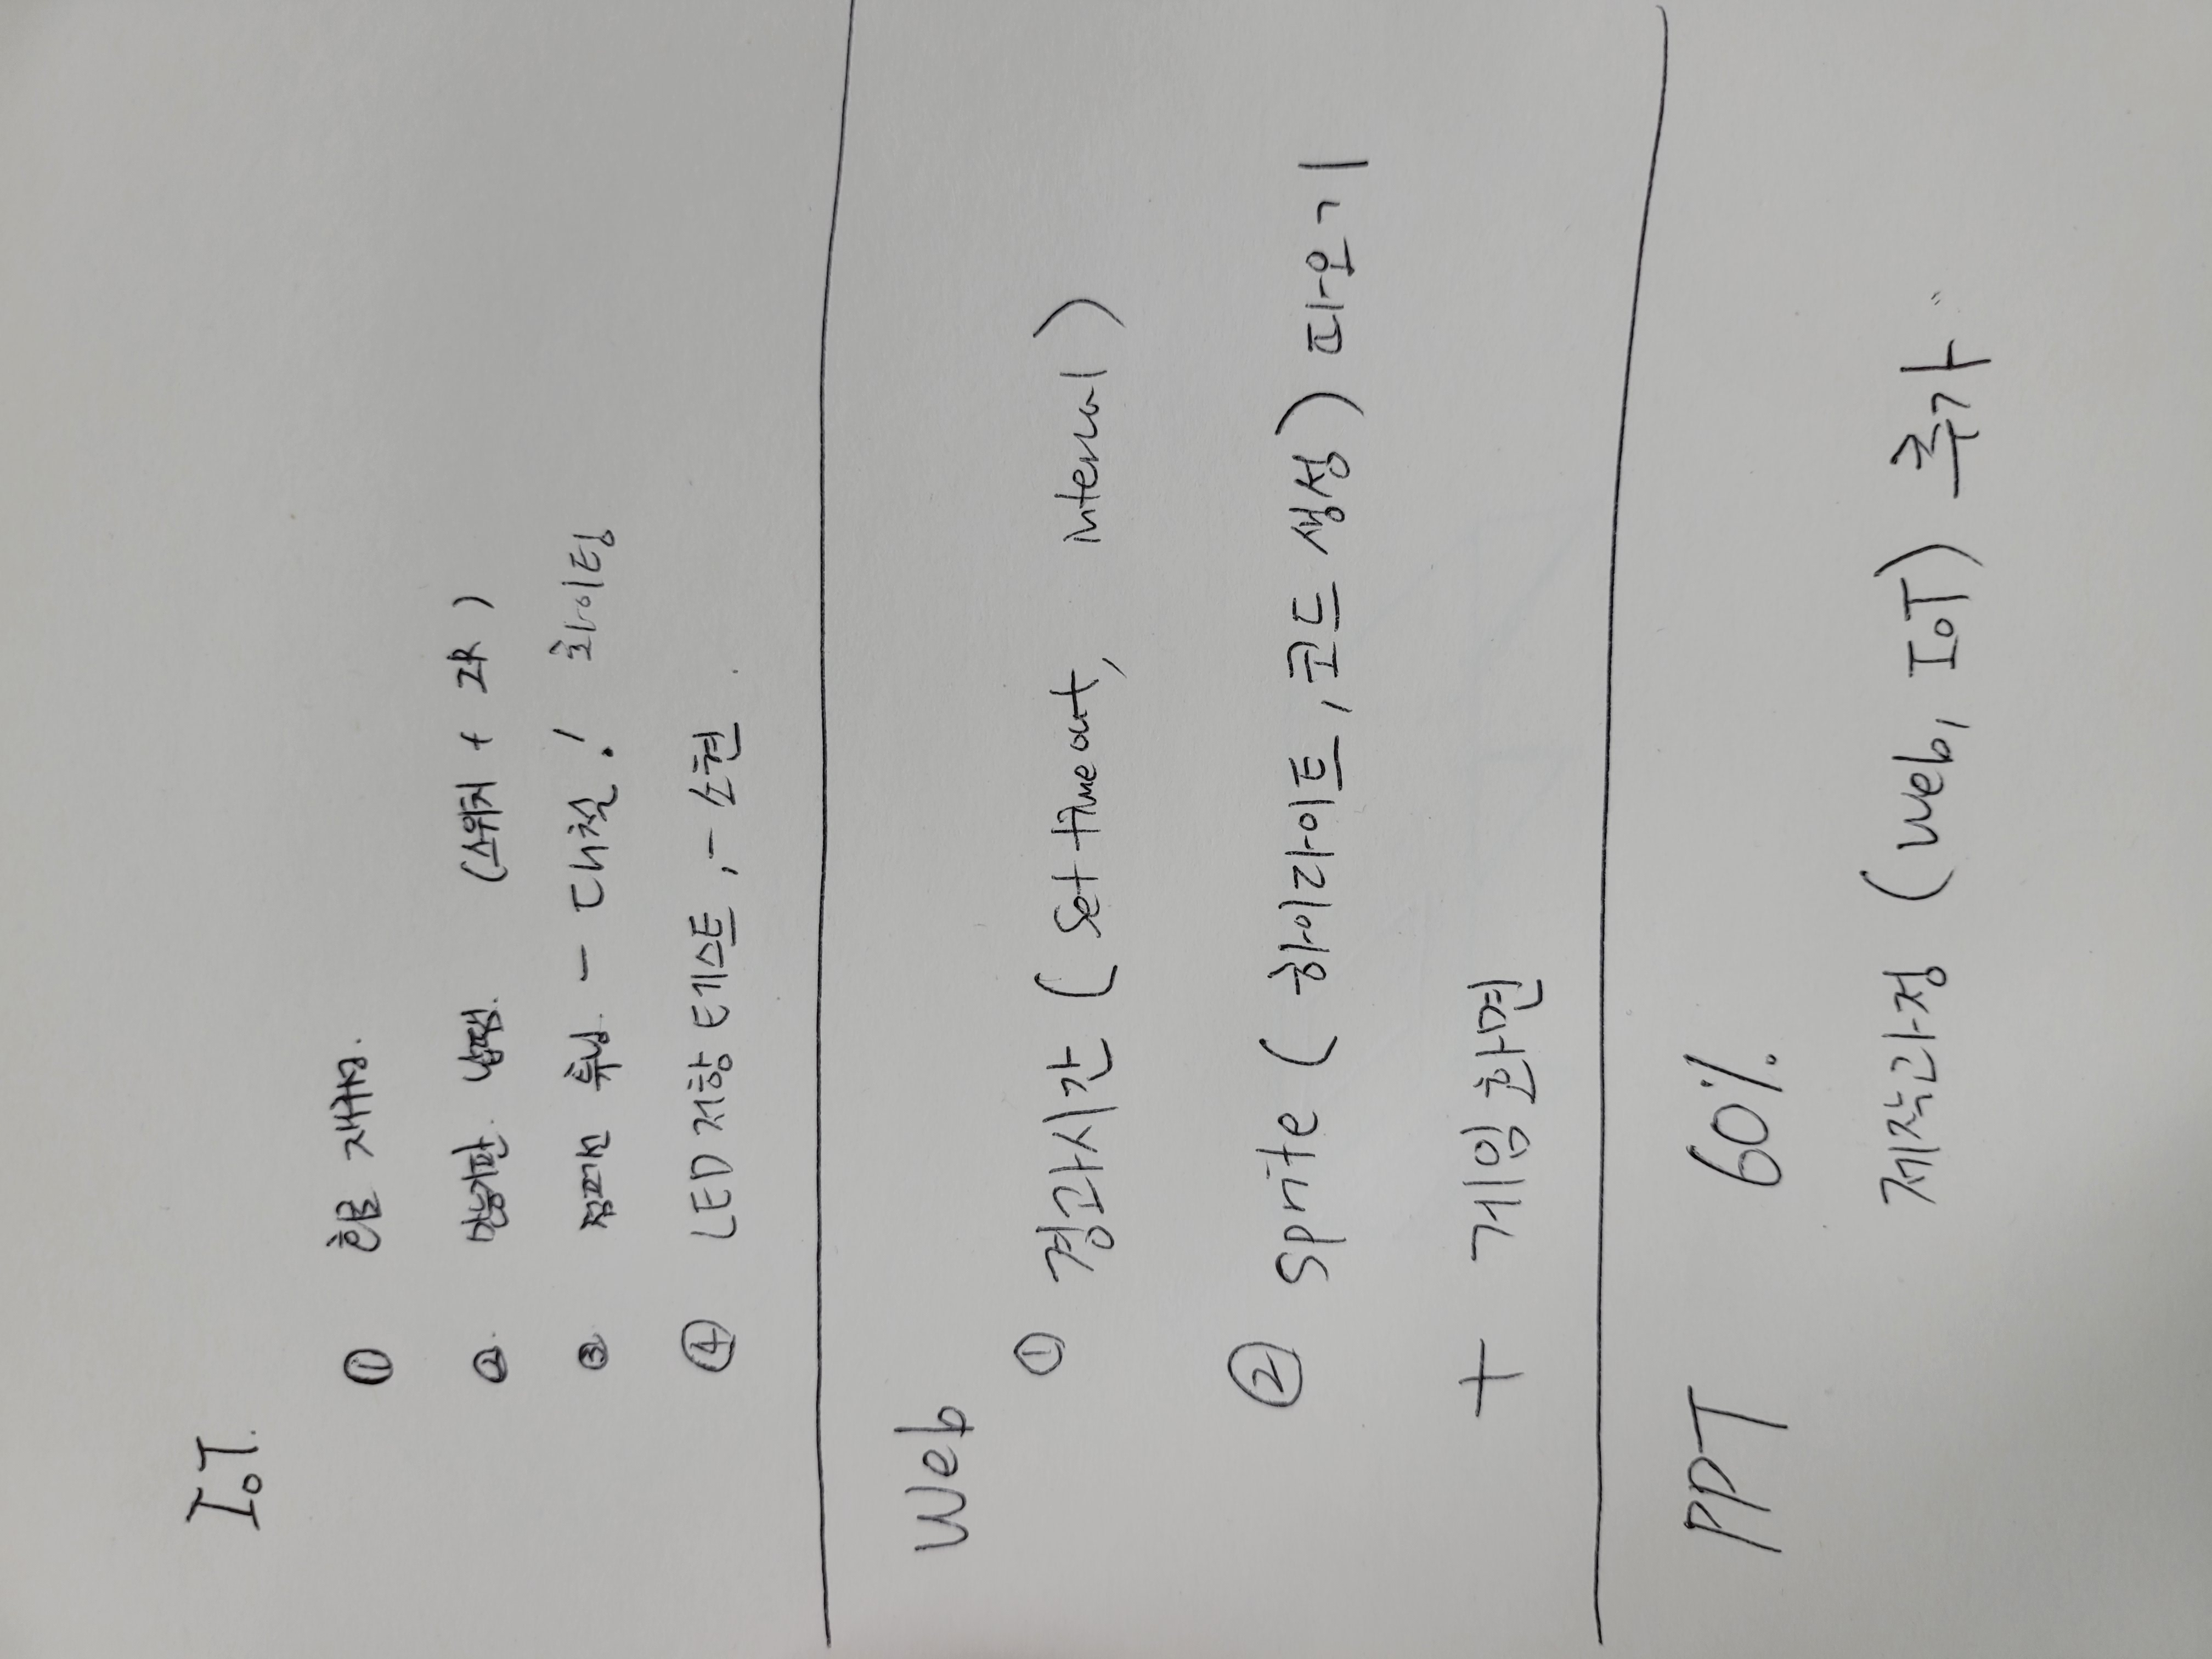 IoT.
① 회로 재구성.
②. 만능기판. 납땜. (스위치 + IR)
③ 점퍼선 튜닝. - 대철! 화이팅
④ LED 저항 테스트, - 소현.
Web
① 경과시간 (Set time out, interval)
② sprite (하이라이트, 코드 생성) 따오기
+ 게임화면
PPT 60%.
제작과정 (Web, IoT) 추가